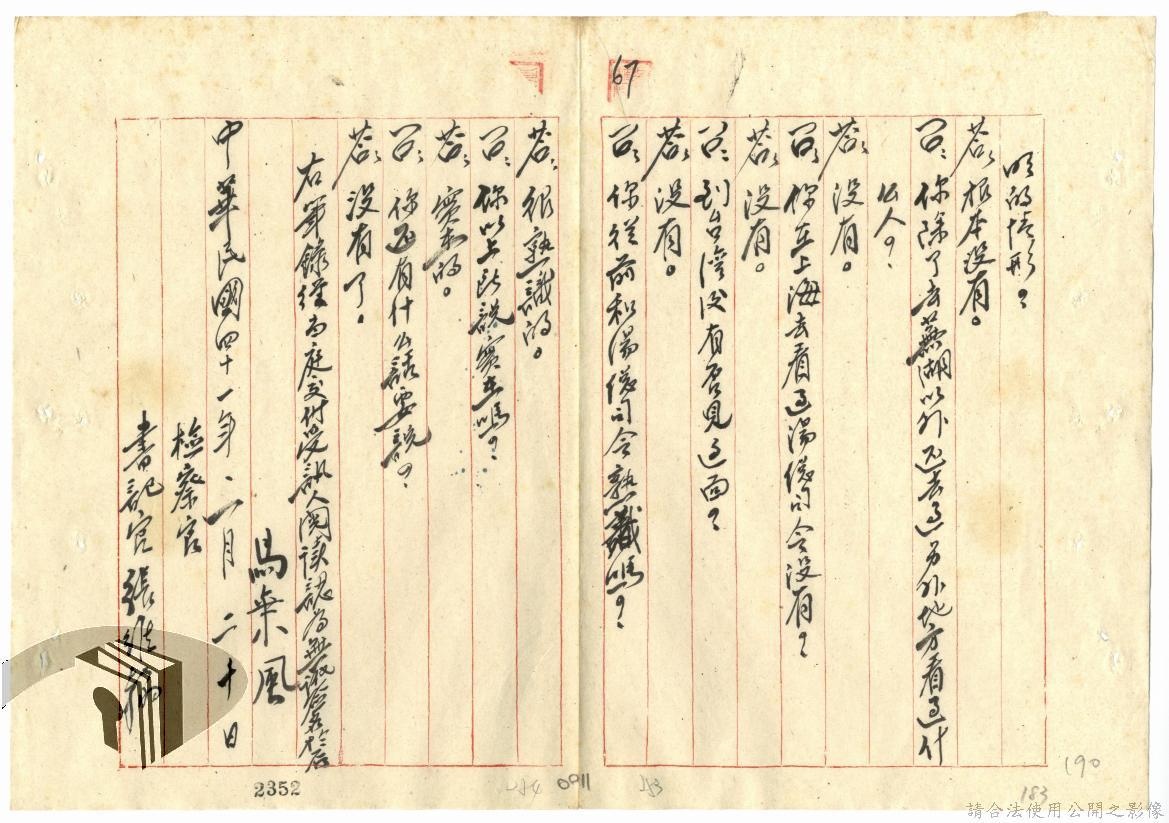 67
明的情形？
答：根本没有。
问：你除了去蕪湖以外还去过另外地方看过什
么人？
答：没有。
问：你在上海去看过湯总司令没有？
答：没有。
问：到台湾后有否見过面？
答：没有。
问：你從前和湯总司令熟識嗎？
答：很熟識的。
问：你以上所說实在嗎？
答：实在的。
问：你还有什么話要說？
答：没有了。
右筆錄经当庭交付受訊人阅读認为無訛簽名於后
馬乘風
中華民國四十一年二月二十日
檢察官
書記官張
2352
0911
183
190
請合法使用公開之影像